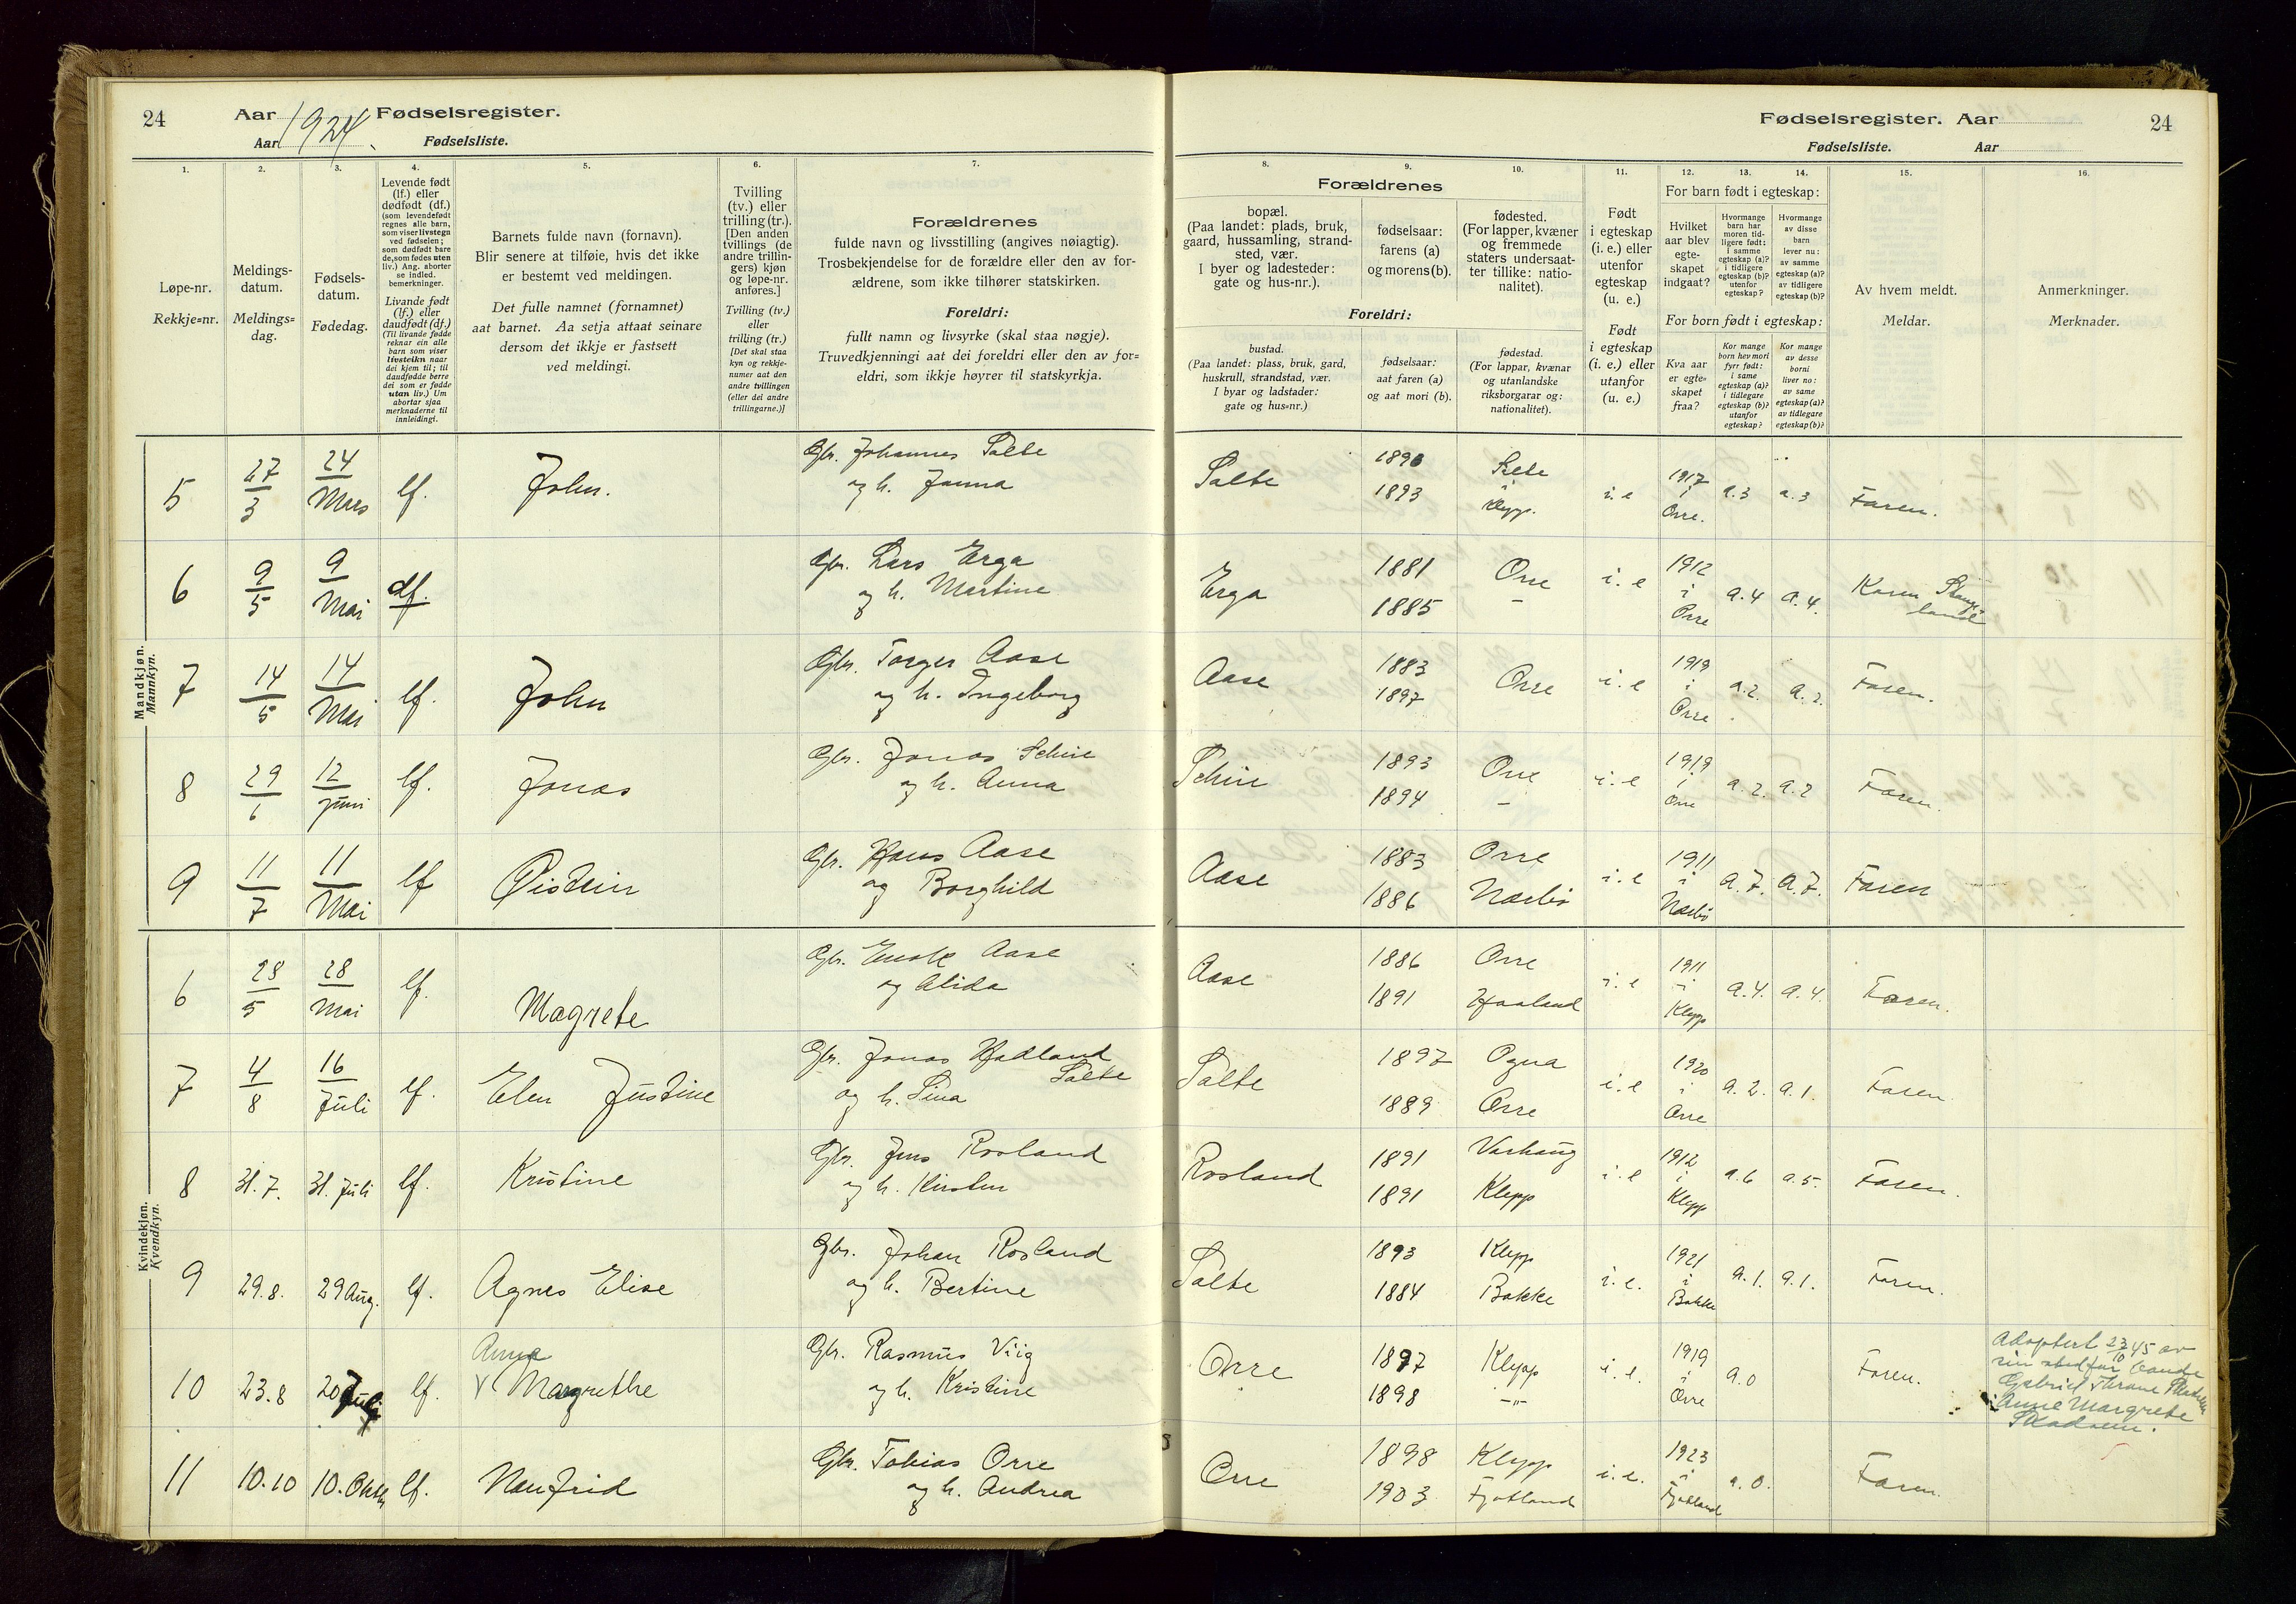 24 Aar 1924. Fødselsregister.
Aar Fødselsliste.
Fødselsregister. Aar 24
Fødselsliste. Aar
1. 2. 3. 4. 5. 6. 7.
Løpe-nr.
Rekkje=nr.
Meldings-
datum.
Meldings=
dag.
Fødsels-
datum.
Fødedag.
Levende født
(lf.) eller
dødfødt (df.)
(som levendefødt
regnes alle barn,
som viser livstegn
ved fødselen;
som dødfødt bare
de, som fødes uten
liv.) Ang. aborter
se indled.
bemerkninger.
Livande født
(lf.) eller
daudfødt (df.)
(Til livande fødde
reknar ein alle
barn som viser
livsteikn naar
dei kjem til; til
daudfødde berre
dei som er fødde
utan liv.) Um
abortar sjaa
merknaderne til
innleidingi.
Barnets fulde navn (fornavn).
Blir senere at tilføie, hvis det ikke
er bestemt ved meldingen.
Det fulle namnet (fornamnet)
aat barnet. Aa setja attaat seinare
dersom det ikkje er fastsett
ved meldingi.
Tvilling
(tv.) eller
trilling (tr.).
[Den anden
tvillings (de
andre trillin-
gers) kjøn
og løpe-nr.
anføres.]
Tvilling (tv.)
eller
trilling (tr.)
[Det skal staa
kyn og rekkje-
numer aat den
andre tvillingen
(eller dei andre
trillingarne.)]
Forældrenes
fulde navn og livsstilling (angives nøiagtig).
Trosbekjendelse for de forældre eller den av for-
ældrene, som ikke tilhører statskirken.
Foreldri:
fullt namn og livsyrke (skal staa nøgje).
Truvedkjenningi aat dei foreldri eller den av for=
eldri, som ikkje høyrer til statskyrkja.
8. 9. 10. 11. 12. 13. 14. 15. 16.
Forældrenes
bopæl.
(Paa landet: plads, bruk,
gaard, hussamling, strand-
sted, vær.
I byer og ladesteder:
gate og hus-nr.).
fødselsaar:
farens (a)
og morens (b).
fødested.
(For lapper, kvæner
og fremmede
staters undersaat-
ter tillike: natio-
nalitet).
Foreldri:
bustad.
(Paa landet: plass, bruk, gard,
huskrull, strandstad, vær.
I byar og ladstader:
gate og hus=nr.)
fødselsaar:
aat faren (a)
og aat mori (b).
fødestad.
(For lappar, kvænar
og utanlandske
riksborgarar og:
nationalitet).
Født
i egteskap
(i. e.) eller
utenfor
egteskap
(u. e.)
Født
i egteskap
(i. e.) eller
utanfor
(u. e.)
For barn født i egteskap:
Hvilket
aar blev
egte-
skapet
indgaat?
Hvormange
barn har
moren tid-
ligere født:
i samme
egteskap (a)?
i tidligere
egteskap (b)?
utenfor
egteskap?
Hvormange
av disse
barn
lever nu:
av samme
egteskap (a)?
av tidligere
egteskap (b)?
For born født i egteskap:
Kva aar
er egte=
skapet
fraa?
Kor mange
born hev mori
fyrr født:
i same
egteskap (a)?
i tidlegare
egteskap (b)?
utanfor
egteskap?
Kor mange
av desse
borni
liver no:
av same
egteskap (a)?
av tidlegare
egteskap (b)?
Av hvem meldt.
Meldar.
Anmerkninger.
Merknader.
Mandkjøn.
Mannkyn.
5 27/3 24 Mars lf. John. Gbr. Johannes Salte og h. Janna Salte 1890 1893 Klepp. i. e 1917 i Orre. a. 3 a. 3 Faren.
6 9/5 9 Mai df. Gbr. Lars Erga og h. Martine Erga 1881 1885 Orre – i. e 1912 i Orre a. 4 a. 4. Karen
7 14/5 14 Mai lf. John Gbr. Torger Aase og h. Ingeborg Aase 1883 1897 Orre i. e 1919 i Orre a. 2. a. 2. Faren.
8 29/6 12 Juni lf. Jonas Gbr. Jonas Schie og h. Anna Schie 1893 1894 Orre – i. e 1919 i Orre a. 2. a. 2 Faren.
9 11/7 11 Mai lf Øistein Gbr. Hans Aase og Borghild Aase 1883 1886 Orre Nærbø i. e 1911 i Nærbø a. 7. a. 7. Faren
Kvindekjøn.
Kvendkyn.
6 28/5 28 Mai lf. Magrete Gbr. Enok Aase og Alida Aase 1886 1891 Orre Haaland i. e 1911 i Klepp a. 4. a. 4. Faren.
7 4/8 16 Juli lf. Elen Justine Gbr. Jonas Hadland Salte og h. Sina Salte 1897 1889 Ogna Orre i. e 1920 i Orre a. 2. a. 1. Faren.
8 31. 7. 31. Juli lf. Kristine Gbr. Jens Rosland og h. Kirsten Rosland 1891 1891 Varhaug Klepp i. e 1912 i Klepp a. 6 a. 5. Faren.
9 29. 8. 29 Aug. lf. Agnes Elise Gbr. Johan Rosland og h. Bertine Salte 1893 1884 Klepp Bakke i. e. 1921 i Bakke a. 1. a. 1. Faren.
10 23. 8 20 Juli lf. Anna Margrethe Gbr. Rasmus Viig og h. Kristine Orre 1897 1898 Klepp –"– i. e. 1919 i Orre a. 0 Faren. Adoptert 23/10 45 av
sin stedfar
Gabriel Thrane
Anne Margrete
11 10. 10 10. Oktb lf. Nanfrid Gbr. Tobias Orre og h. Andrea Orre 1898 1903 Klepp Fjotland i. e. 1923 i Fjotland a. 0. Faren.